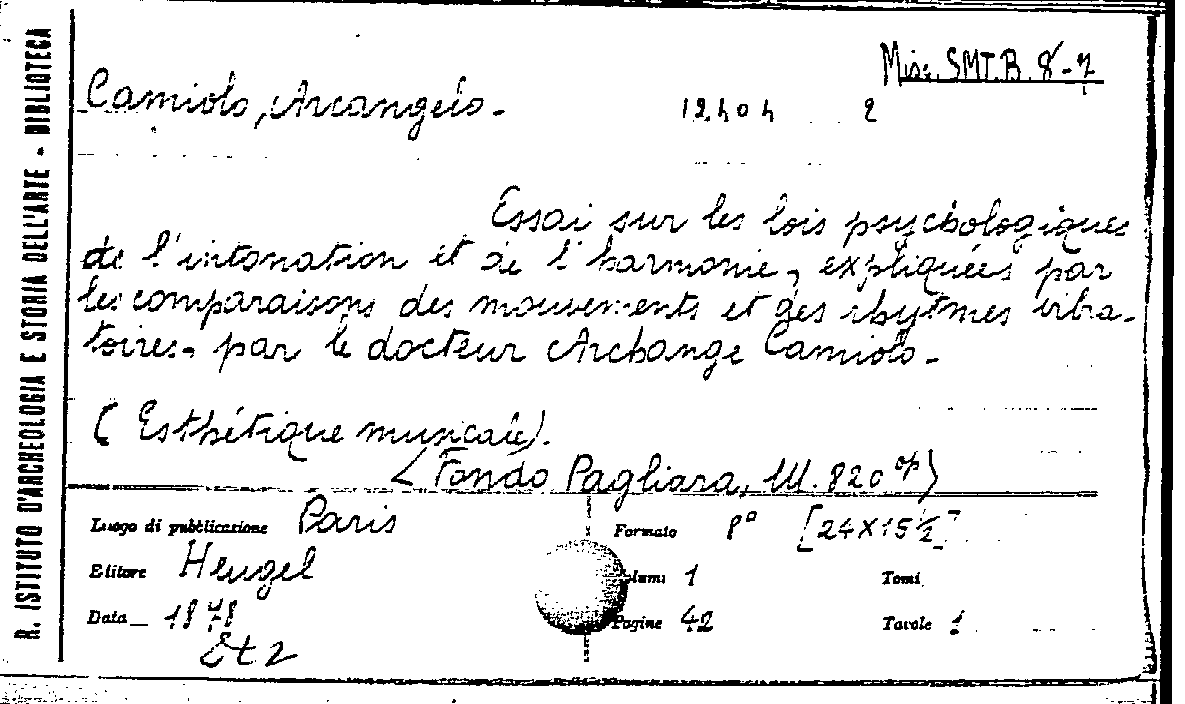 R. ISTITUTO D'ARCHEOLOGIA E STORIA DELL'ARTE - BIBLIOTECA
Misc. SMT.B. 8-7
Camiolo, Arcangelo.
12404 2
Essai sur les lois psychologiques
de l'intonation et de l'harmonie, expliquées par
les comparaisons des mouvements et des rhytmes vibra-
toires. par le docteur Archange Camiolo.
(Esthétique musicale).
(Fondo Pagliara, III. 820 op)
Luogo di pubblicazione Paris Formato 8º [24X15½]
Editore Heugel Volumi 1 Tomi
Data 1878 Pagine 42 Tavole 1